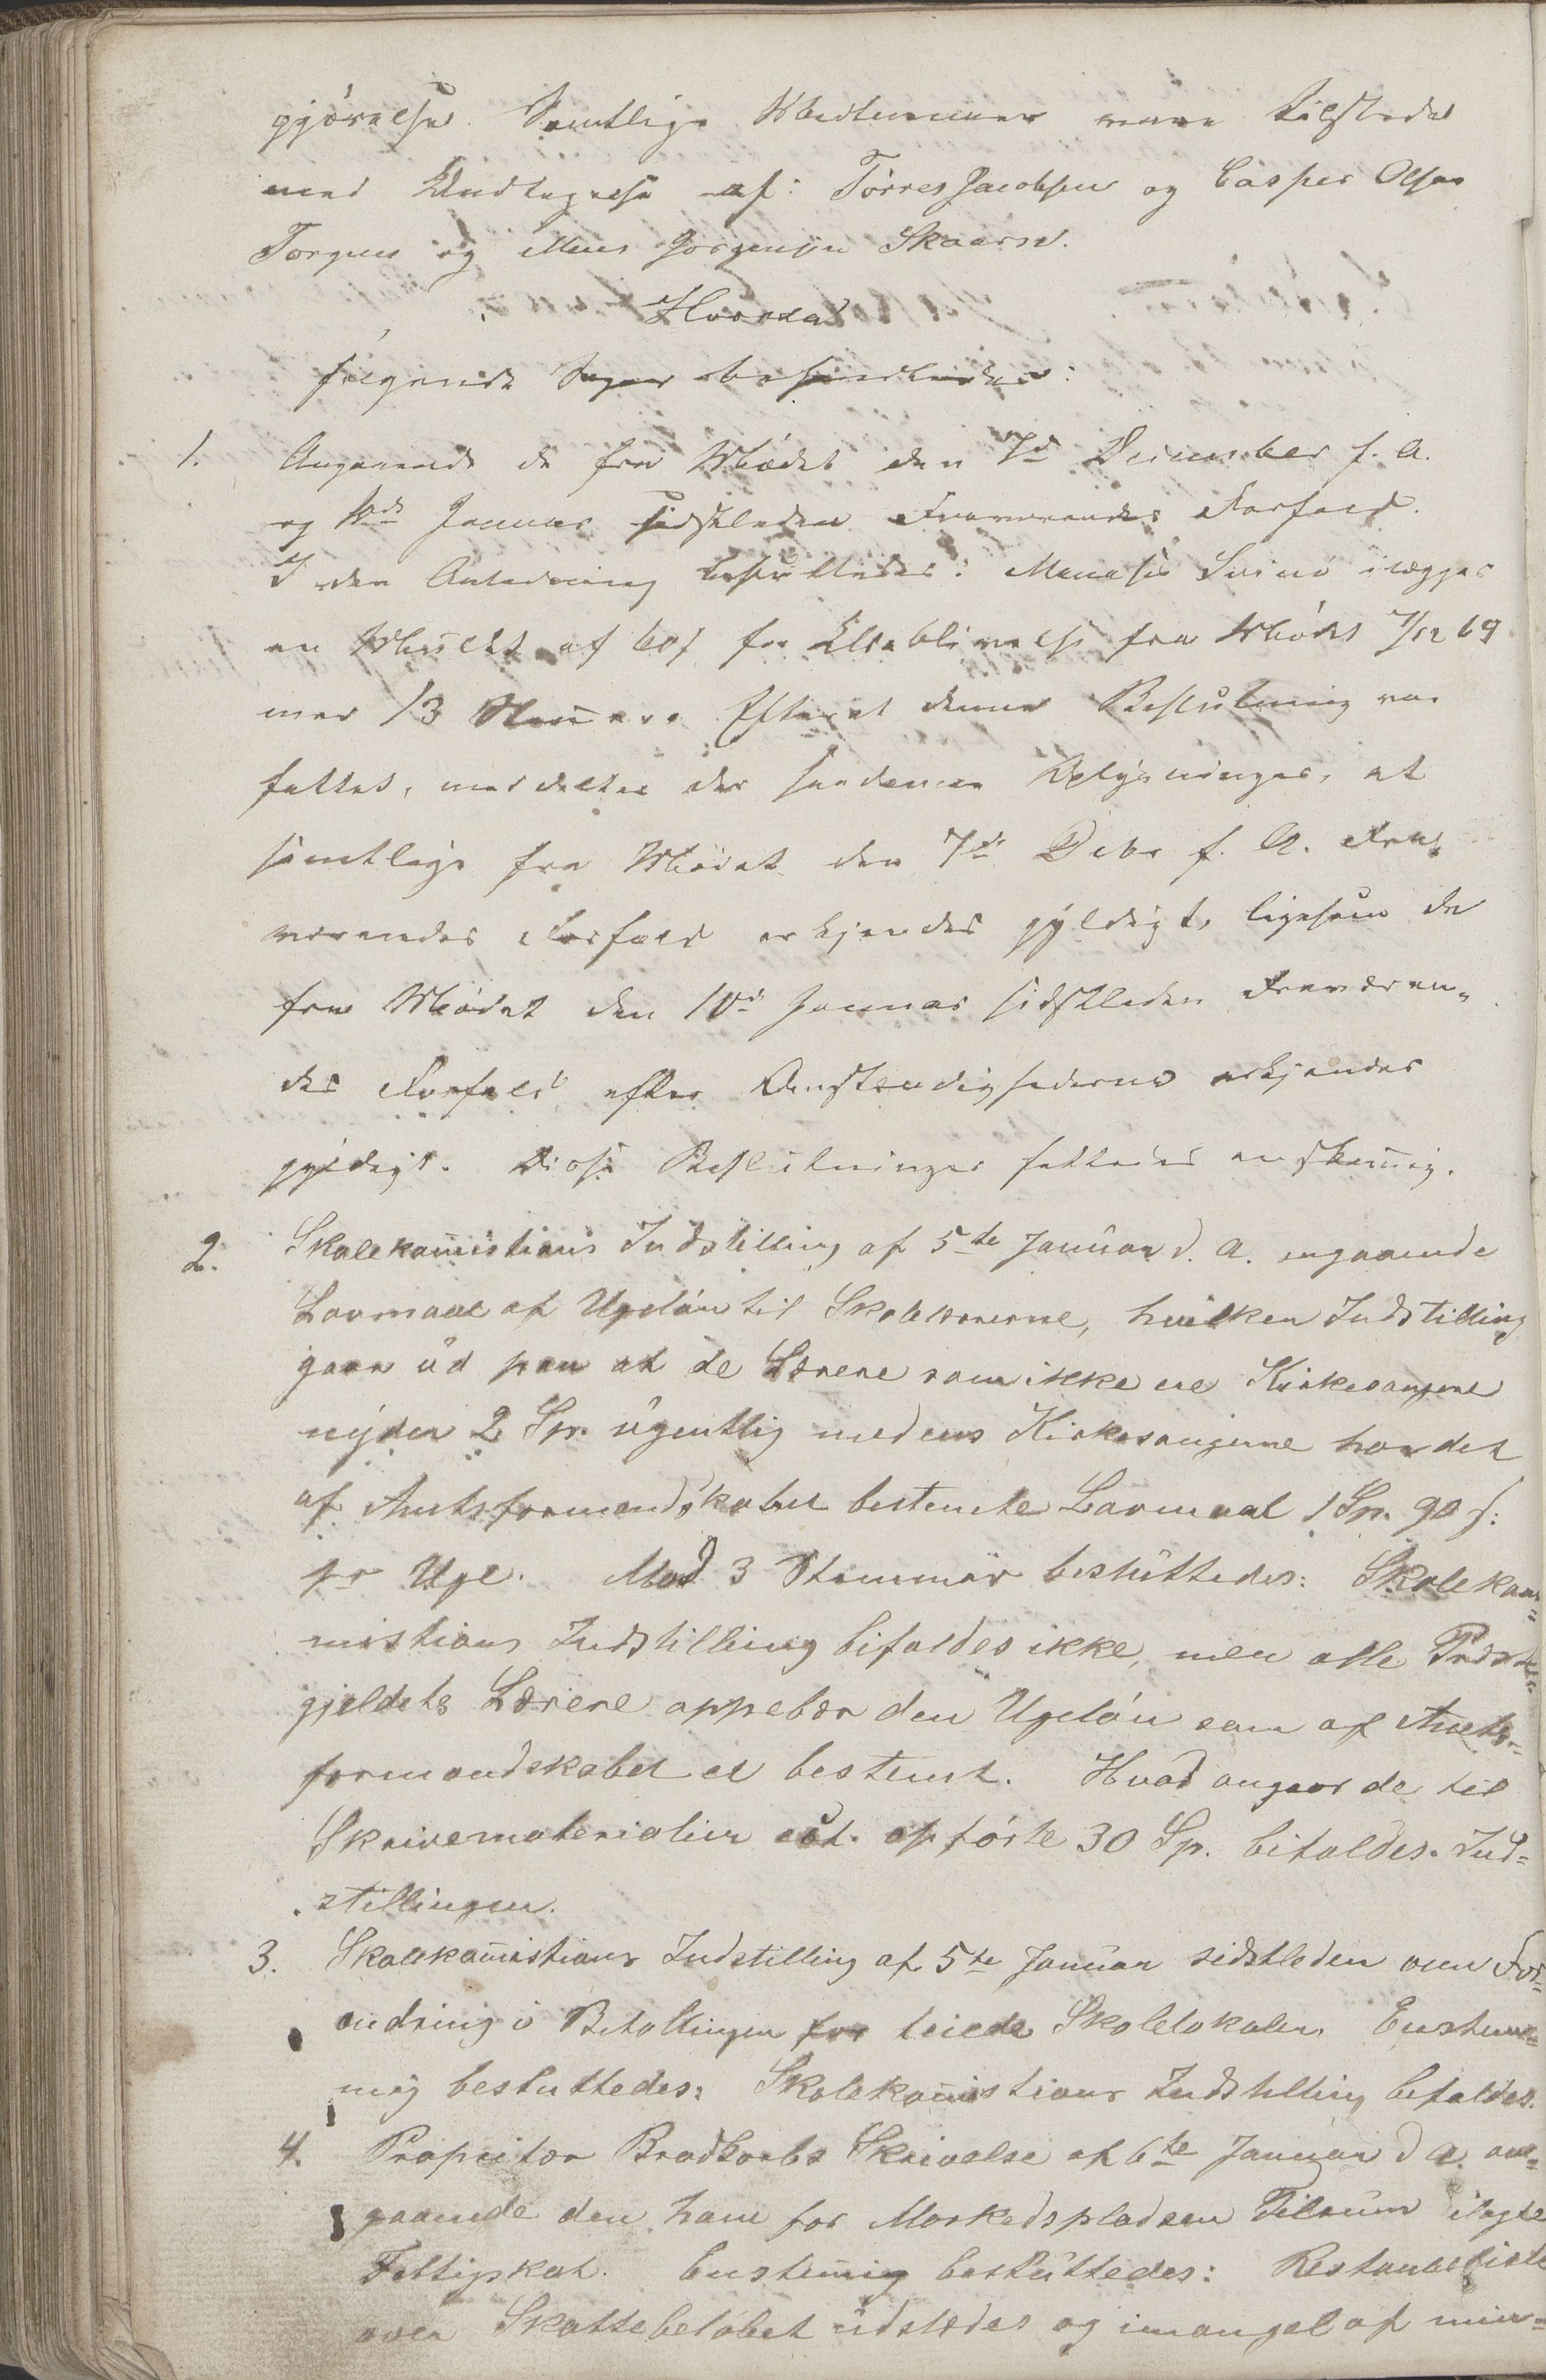 gjörelse. Samtlige Medlemmer vare tilstede
med Undtagelse af: Törres Jacobsen og Casper Olsen
Torgnes og Mons Jörgensen Skaarn.
Hvorda
følgende Sager behandledes:
1. Angaaende de fra Mødet den 7d December f. A.
og 10de Januar sidstleden Fraværendes Forfald.
I den Anledning besluttedes: Svinö ilægges
en Mulkt af 60 s for Udeblivelse fra Mödet 7/12 69
mod 13 Stemmer. Efterat denne Beslutning var
fattet, meddeltes der saadanne Oplysninger, at
samtlige fra Mödet den 7de Debr f. A. Fra-
værendes Forfald erkjendes gyldigt, ligesom de
fra Mödet den 10de Januar sidstleden Fraværen-
des Forfald efter Omstændighederne erkjendes
gyldigt. Disse Beslutninger fattedes enstem̄ig.
2. Skolekom̄istions Indstilling af 5te Januar d. A. angaaende
Lavmaal af Ugelön til Skolelærerne, hvilken Indstilling
gaar ud paa at de Lærere som ikke ere Kirkesangere
nyder 2 Sp. ugentlig medens Kirkesangerne har det
af Amtsformandskabet bestemte Lavmaal 1 Sp. 90 s:
pr Uge. Mod 3 Stemmer besluttedes: Skolekom=
mistions Indstilling bifaldes ikke, men alle Præste=
gjeldets Lærere oppebær den Ugelön som af Amts=
formandskabet er bestemt. Hvad angaar de til
Skrivematerialier ect. opförte 30 Sp. bifaldes Ind=
stillingen.
3. Skolekom̄istions Indstilling af 5te Januar sidstleden om For=
andring i Betallingen for leiede Skolelokaler. Enstem=
mig besluttedes: Skolekom̄istions Indstilling bifaldes.
4. Propritær Brodkorbs Skrivelse af 6te Januar d A. an=
gaaende den ham for Markedspladsen Tilrum ilagte
Fattigskat. Enstem̄ig besluttedes: Restanceliste
over Skattebelöbet udstædes og imangel af min=